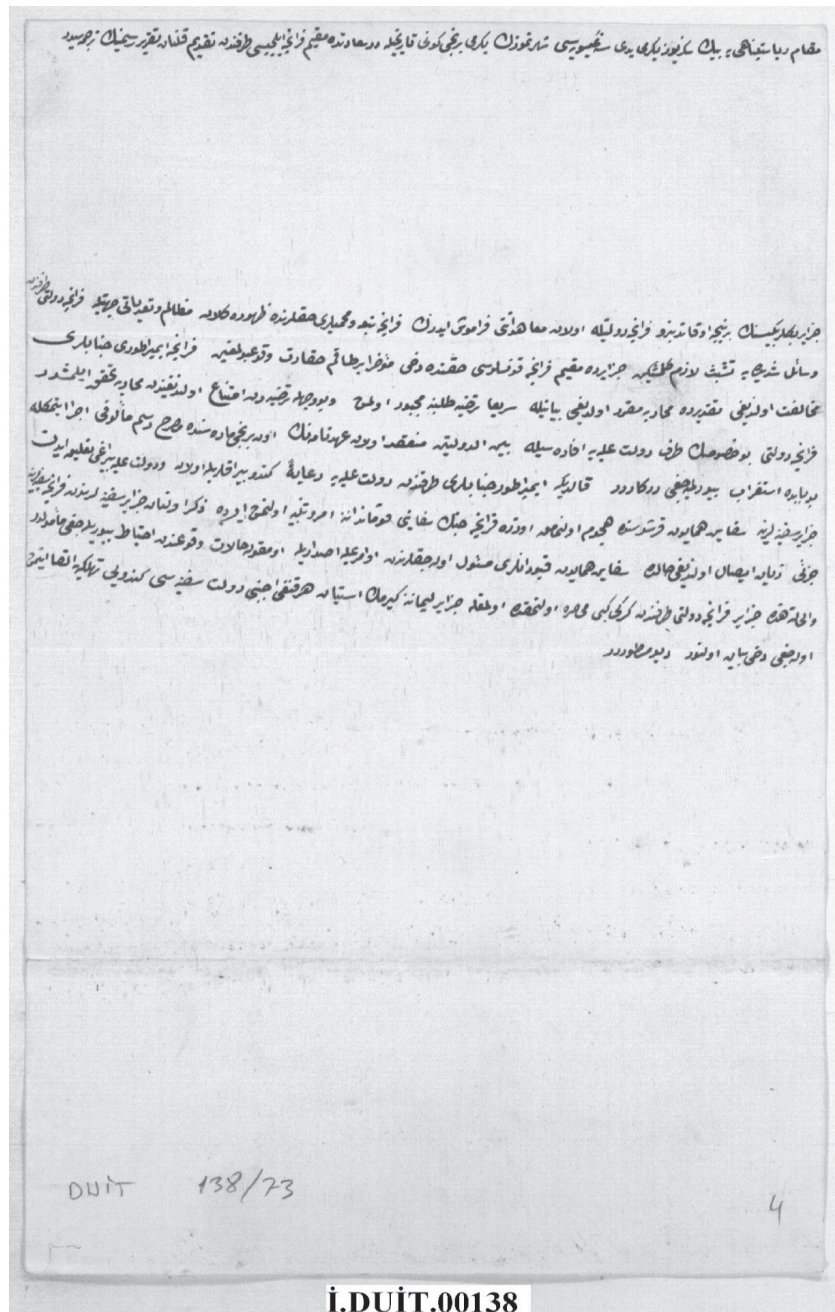 مقام ریاستپناهی یه بیك سکزیوز یکرمی یدی سنه عیسویه سی شهر تموزك یکرمی برنجی کونی تاریخیله درسعادتده مقیم فرانچه ایلچیسی طرفندن تقدیم قلنان تقریر رسمینك ترجمه سیدر
جزایر بکلربکیسنك برنیجه اوقاتدنبرو فرانچه دولتیله اولان معاهداتی فراموش ایدرك فرانچه تبعه ومحمیلری حقلرنده ظهوره کلان مظالم وتعدیاتی جهتیله فرانچه دولتی طرفندن
وسائل شدیده یه تشبث لازم کلمشیکن جزایرده مقیم فرانچه قونسلوسی حقنده دخی مؤخرا بر طاقم حقارت وقوعبولمغین فرانچه ایمپراطوری جنابلری
مخالفت اولدیغی تقدیرده محاربه مقرر اولدیغی بیانیله سریعا ترضیه طلبنه مجبور اولمش وبو وجهله ترضیه دن امتناع اولندیغندن محاربه تحقق ایلمشدر
فرانچه دولتی بو خصوصك طرف دولت علیه یه افاده سیله بین الدولتین منعقد اولان عهدنامه نك اون برنجی ماده سنده مصرح رسم مألوفی اجرا ایتمکله
بو بابده استغراب بیورلمیه جغی درکاردر قالدیکه ایمپراطور جنابلری طرفندن دولت علیه یه رعایةً کندو بیراقلریله اولان ودولت علیه بیراغی تعلیق ایدن
جزایر سفینه لرینه سفاین همایون قرشوسنده هجوم اولنمامق اوزره فرانچه جنك سفاینی قوماندانه امر وتنبیه اولنمش ایسه ده ذکر اولنان جزایر سفینه لرندن فرانچه سفاینه
جزئی زیان ایصال اولندیغی حالده سفاین همایون قپودانلری مسئول اوله جقلرندن اوامر علیه اصداریله او مقوله حالات وقوعندن احتیاط بیوریله جغی مأمولدر
والحالة هذه جزایر فرانچه دولتی طرفندن کرکی کبی محاصره اولنمقده اولمغله جزایر لیماننه کیرمك استیان هرقنغی اجنبی دولت سفینه سی کندویی تهلکه یه القا ایتمش
اوله جغی دخی بیان اولنور دیو مسطوردر
DUİT 138/73
4
İ.DUİT.00138